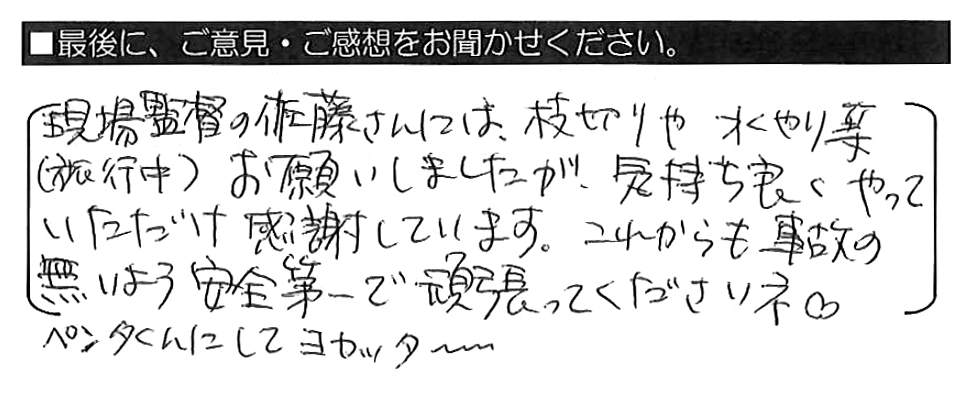 ■最後に、ご意見・ご感想をお聞かせください。
現場監督の佐藤さんには、枝切りや 水やり等
(旅行中) お願いしましたが、気持ち良く やって
いただけ 感謝しています。これからも 事故の
無いよう 安全第一で 頑張ってくださいネ
ペンタくんにして ヨカッタ〜